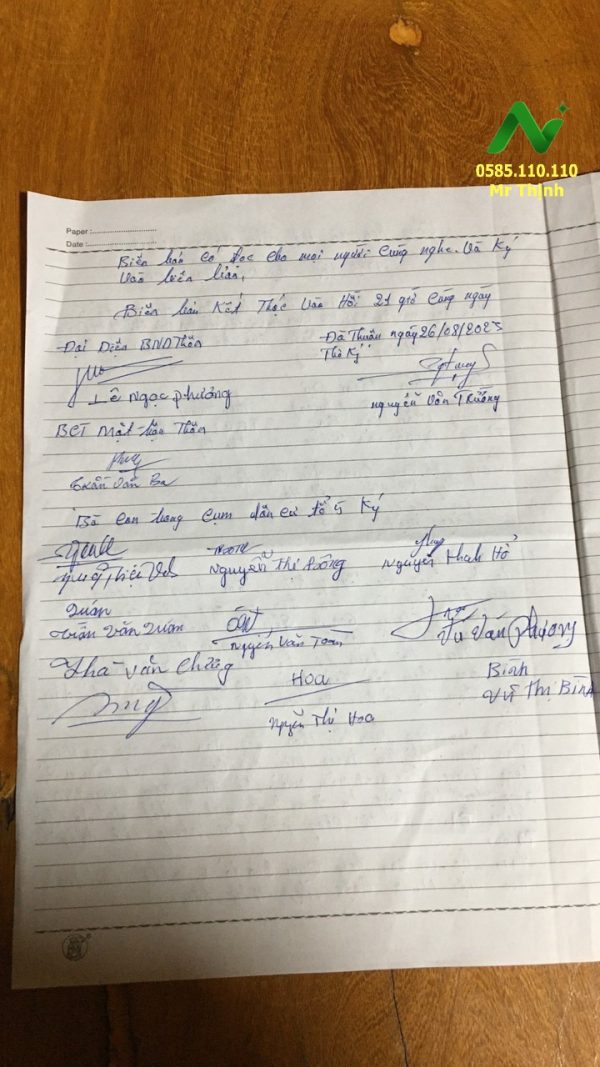 0585.110.110
Mr Thịnh
Paper :
Date :
Biên bản có đọc cho mọi người cùng nghe. Và Ký
vào biên bản.
Biên bản Kết Thúc vào Hồi 21 giờ cùng ngày
Đại Diện BND Thôn
Đã Thuận ngày 26/08/2023
Thư Ký
Lê Ngọc phương
nguyễn Văn Trường
BCT Mặt trận Thôn
Trần Văn Ba
Bà con trong cụm dân cư tổ 5 Ký
Nguyễn Thị Đông
Nguyễn Thanh Hồ
Trần Văn Quán
Nguyễn Văn Toàn
Vũ Văn Phương
văn Chung
Hoa
Bình
Nguyễn Thị Hoa
Vũ Thị Bình